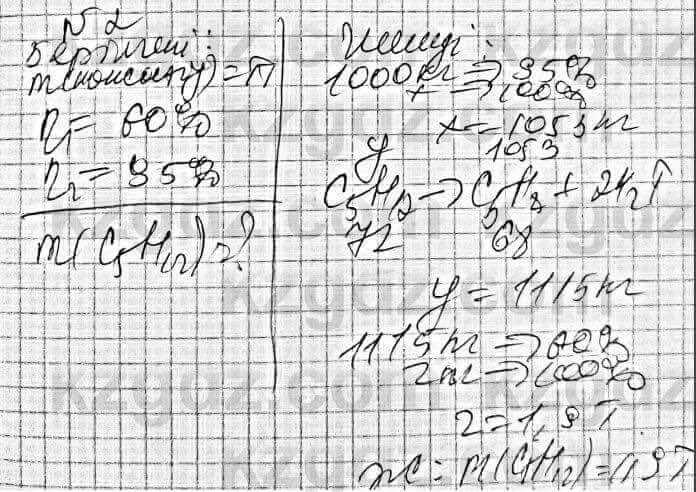 N 2
Берілгені:
m(каисапу)=1т
η₁= 60%
η₂= 95%
m(C₅H₁₂)=?
Шешуі:
1000кг ⇒ 95%
x ⇒ 100%
x = 1053кг
y 1053
C₅H₁₂ → C₅H₈ + 2H₂↑
72 68
y = 1115кг
1115кг ⇒ 60%
z кг ⇒ 100%
z = 1,9 т
Ж: m(C₅H₁₂)=1,9т
kzgdz.com